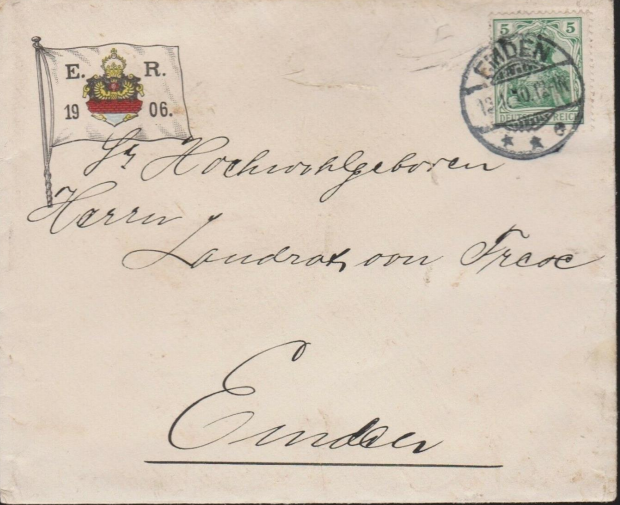 E. R.
19 06.
5 5
EMDEN
DEUTSCHES REICH
Sr Hochwohlgeboren
Herrn
Landrat von Frese
Emden